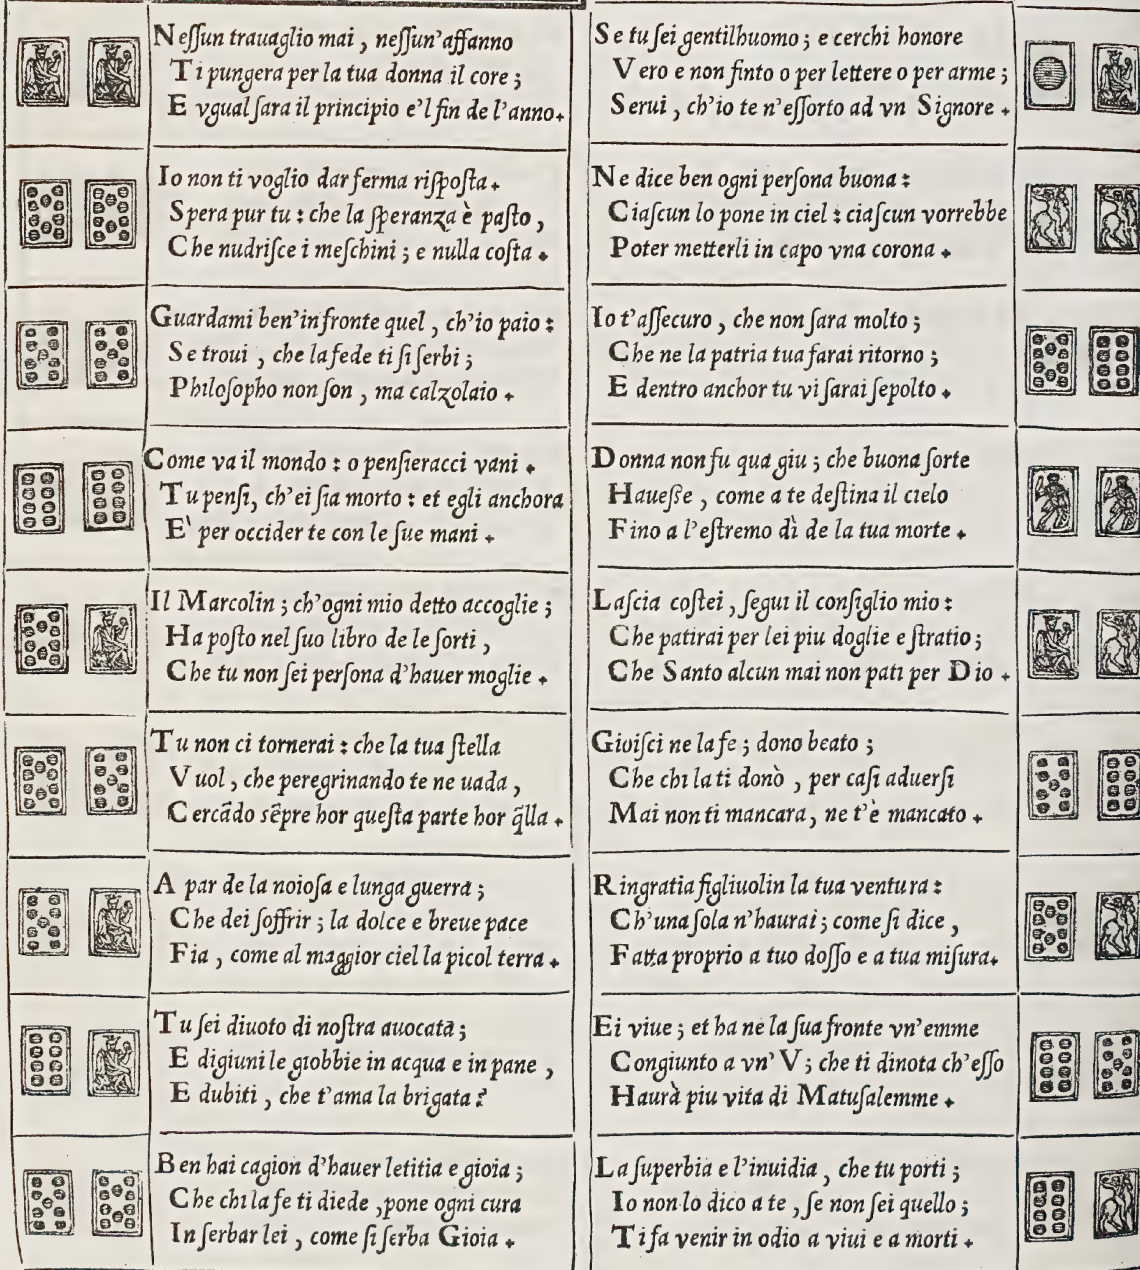 Neſſun trauaglio mai, neſſun'affanno
Ti pungera per la tua donna il core;
E vgual ſara il principio e'l fin de l'anno.
Io non ti voglio dar ferma riſpoſta.
Spera pur tu: che la ſperanza è paſto,
Che nudriſce i meſchini; e nulla coſta.
Guardami ben'in fronte quel, ch'io paio:
Se troui, che la fede ti ſi ſerbi;
Philoſopho non ſon, ma calzolaio.
Come va il mondo: o penſieracci vani.
Tu penſi, ch'ei ſia morto: et egli anchora
E' per occider te con le ſue mani.
Il Marcolin; ch'ogni mio detto accoglie;
Ha poſto nel ſuo libro de le ſorti,
Che tu non ſei perſona d'hauer moglie.
Tu non ci tornerai: che la tua ſtella
Vuol, che peregrinando te ne uada,
Cercãdo sẽpre hor queſta parte hor q̃lla.
A par de la noioſa e lunga guerra;
Che dei ſoffrir; la dolce e breue pace
Fia, come al maggior ciel la picol terra.
Tu ſei diuoto di noſtra auocata;
E digiuni le giobbie in acqua e in pane,
E dubiti, che t'ama la brigata?
Ben hai cagion d'hauer letitia e gioia;
Che chi la fe ti diede, pone ogni cura
In ſerbar lei, come ſi ſerba Gioia.
Se tu ſei gentilhuomo; e cerchi honore
Vero e non finto o per lettere o per arme;
Serui, ch'io te n'eſſorto ad vn Signore.
Ne dice ben ogni perſona buona:
Ciaſcun lo pone in ciel: ciaſcun vorrebbe
Poter metterli in capo vna corona.
Io t'aſſecuro, che non ſara molto;
Che ne la patria tua farai ritorno;
E dentro anchor tu vi ſarai ſepolto.
Donna non fu qua giu; che buona ſorte
Haueſſe, come a te deſtina il cielo
Fino a l'eſtremo dì de la tua morte.
Laſcia coſtei, ſegui il conſiglio mio:
Che patirai per lei piu doglie e ſtratio;
Che Santo alcun mai non pati per Dio.
Gioiſci ne la fe; dono beato;
Che chi la ti donò, per caſi aduerſi
Mai non ti mancara, ne t'è mancato.
Ringratia figliuolin la tua ventura:
Ch'una ſola n'haurai; come ſi dice,
Fatta proprio a tuo doſſo e a tua miſura.
Ei viue; et ha ne la ſua fronte vn'emme
Congiunto a vn'V; che ti dinota ch'eſſo
Haurà piu vita di Matuſalemme.
La ſuperbia e l'inuidia, che tu porti;
Io non lo dico a te, ſe non ſei quello;
Ti fa venir in odio a viui e a morti.